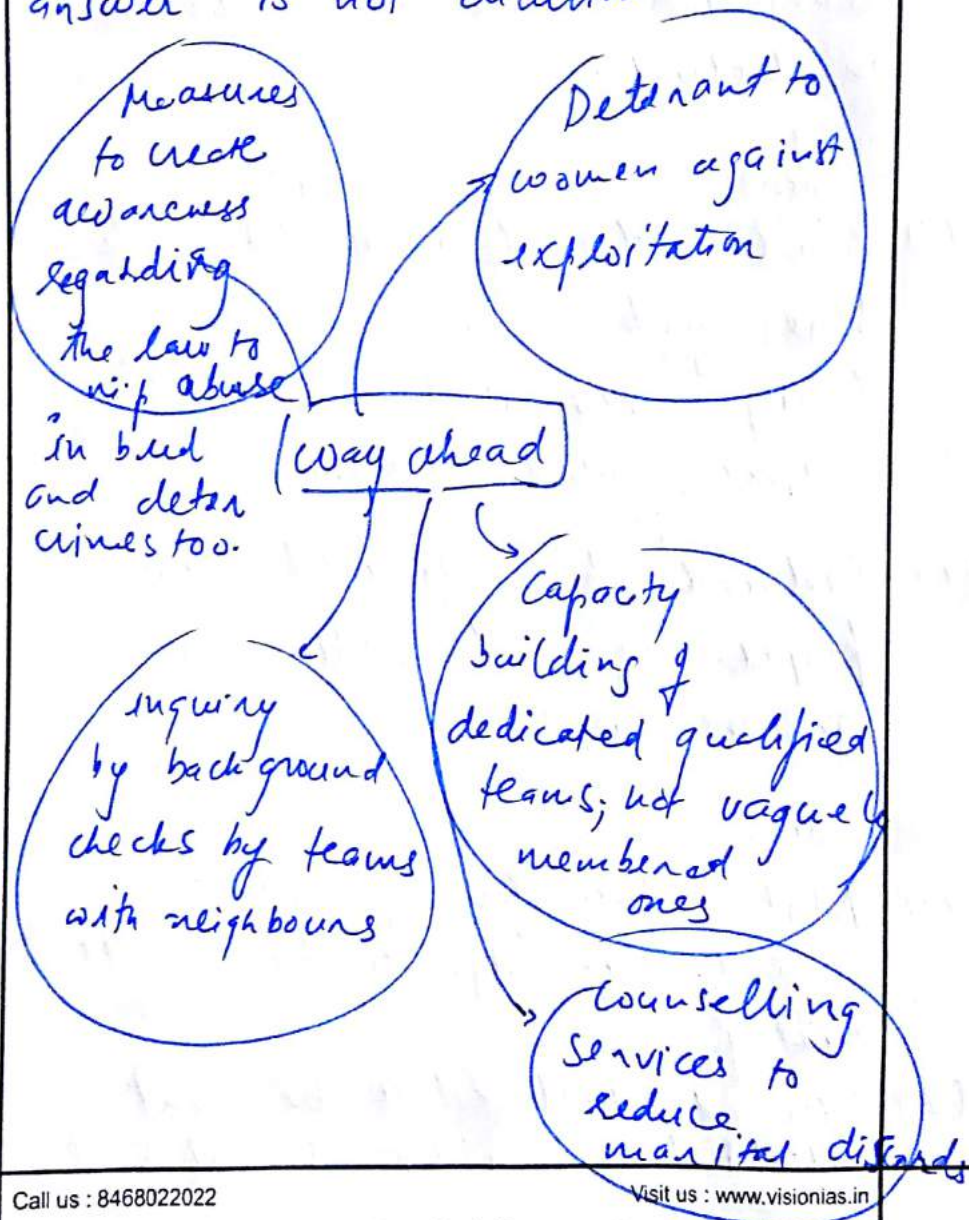 answer is not
Measures
to create
awareness
regarding
the law to
nip abuse
in bud
and deter
crimes too.
Deterant to
women against
exploitation
way ahead
Capacity
building of
dedicated qualified
teams; not vaguely
membered
ones
inquiry
by background
checks by teams
with neighbours
Counselling
services to
reduce
marital discords
Call us : 8468022022
Visit us : www.visionias.in